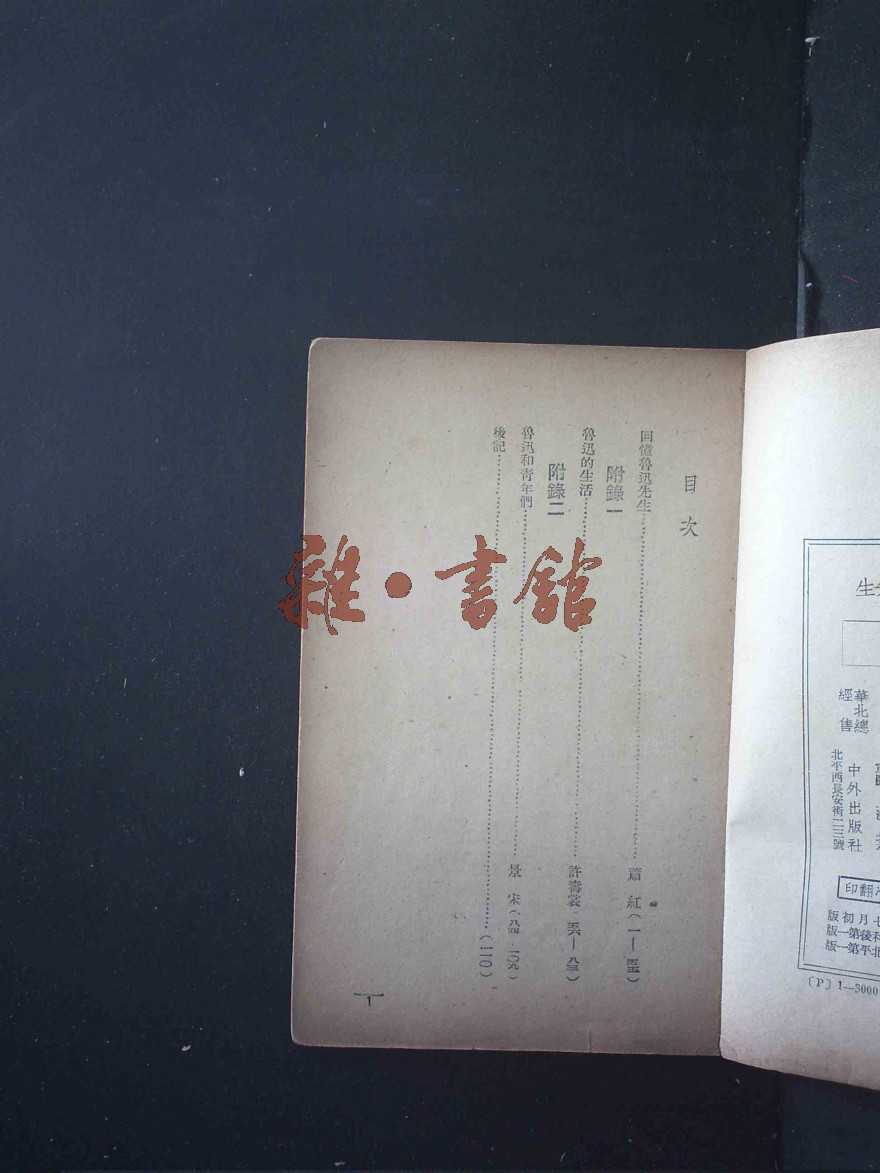 目次
回憶魯迅先生……蕭紅(一—五五)
附錄一
魯迅的生活……許壽裳(五六—八三)
附錄二
魯迅和青年們……景宋(八四—一〇九)
後記……(一一〇)
1
雜·書館
生
華北總
經售
中外出版社
北平西長安街二三號
翻印
七月初版
後第一版
北平第一版
〔P〕1—3000